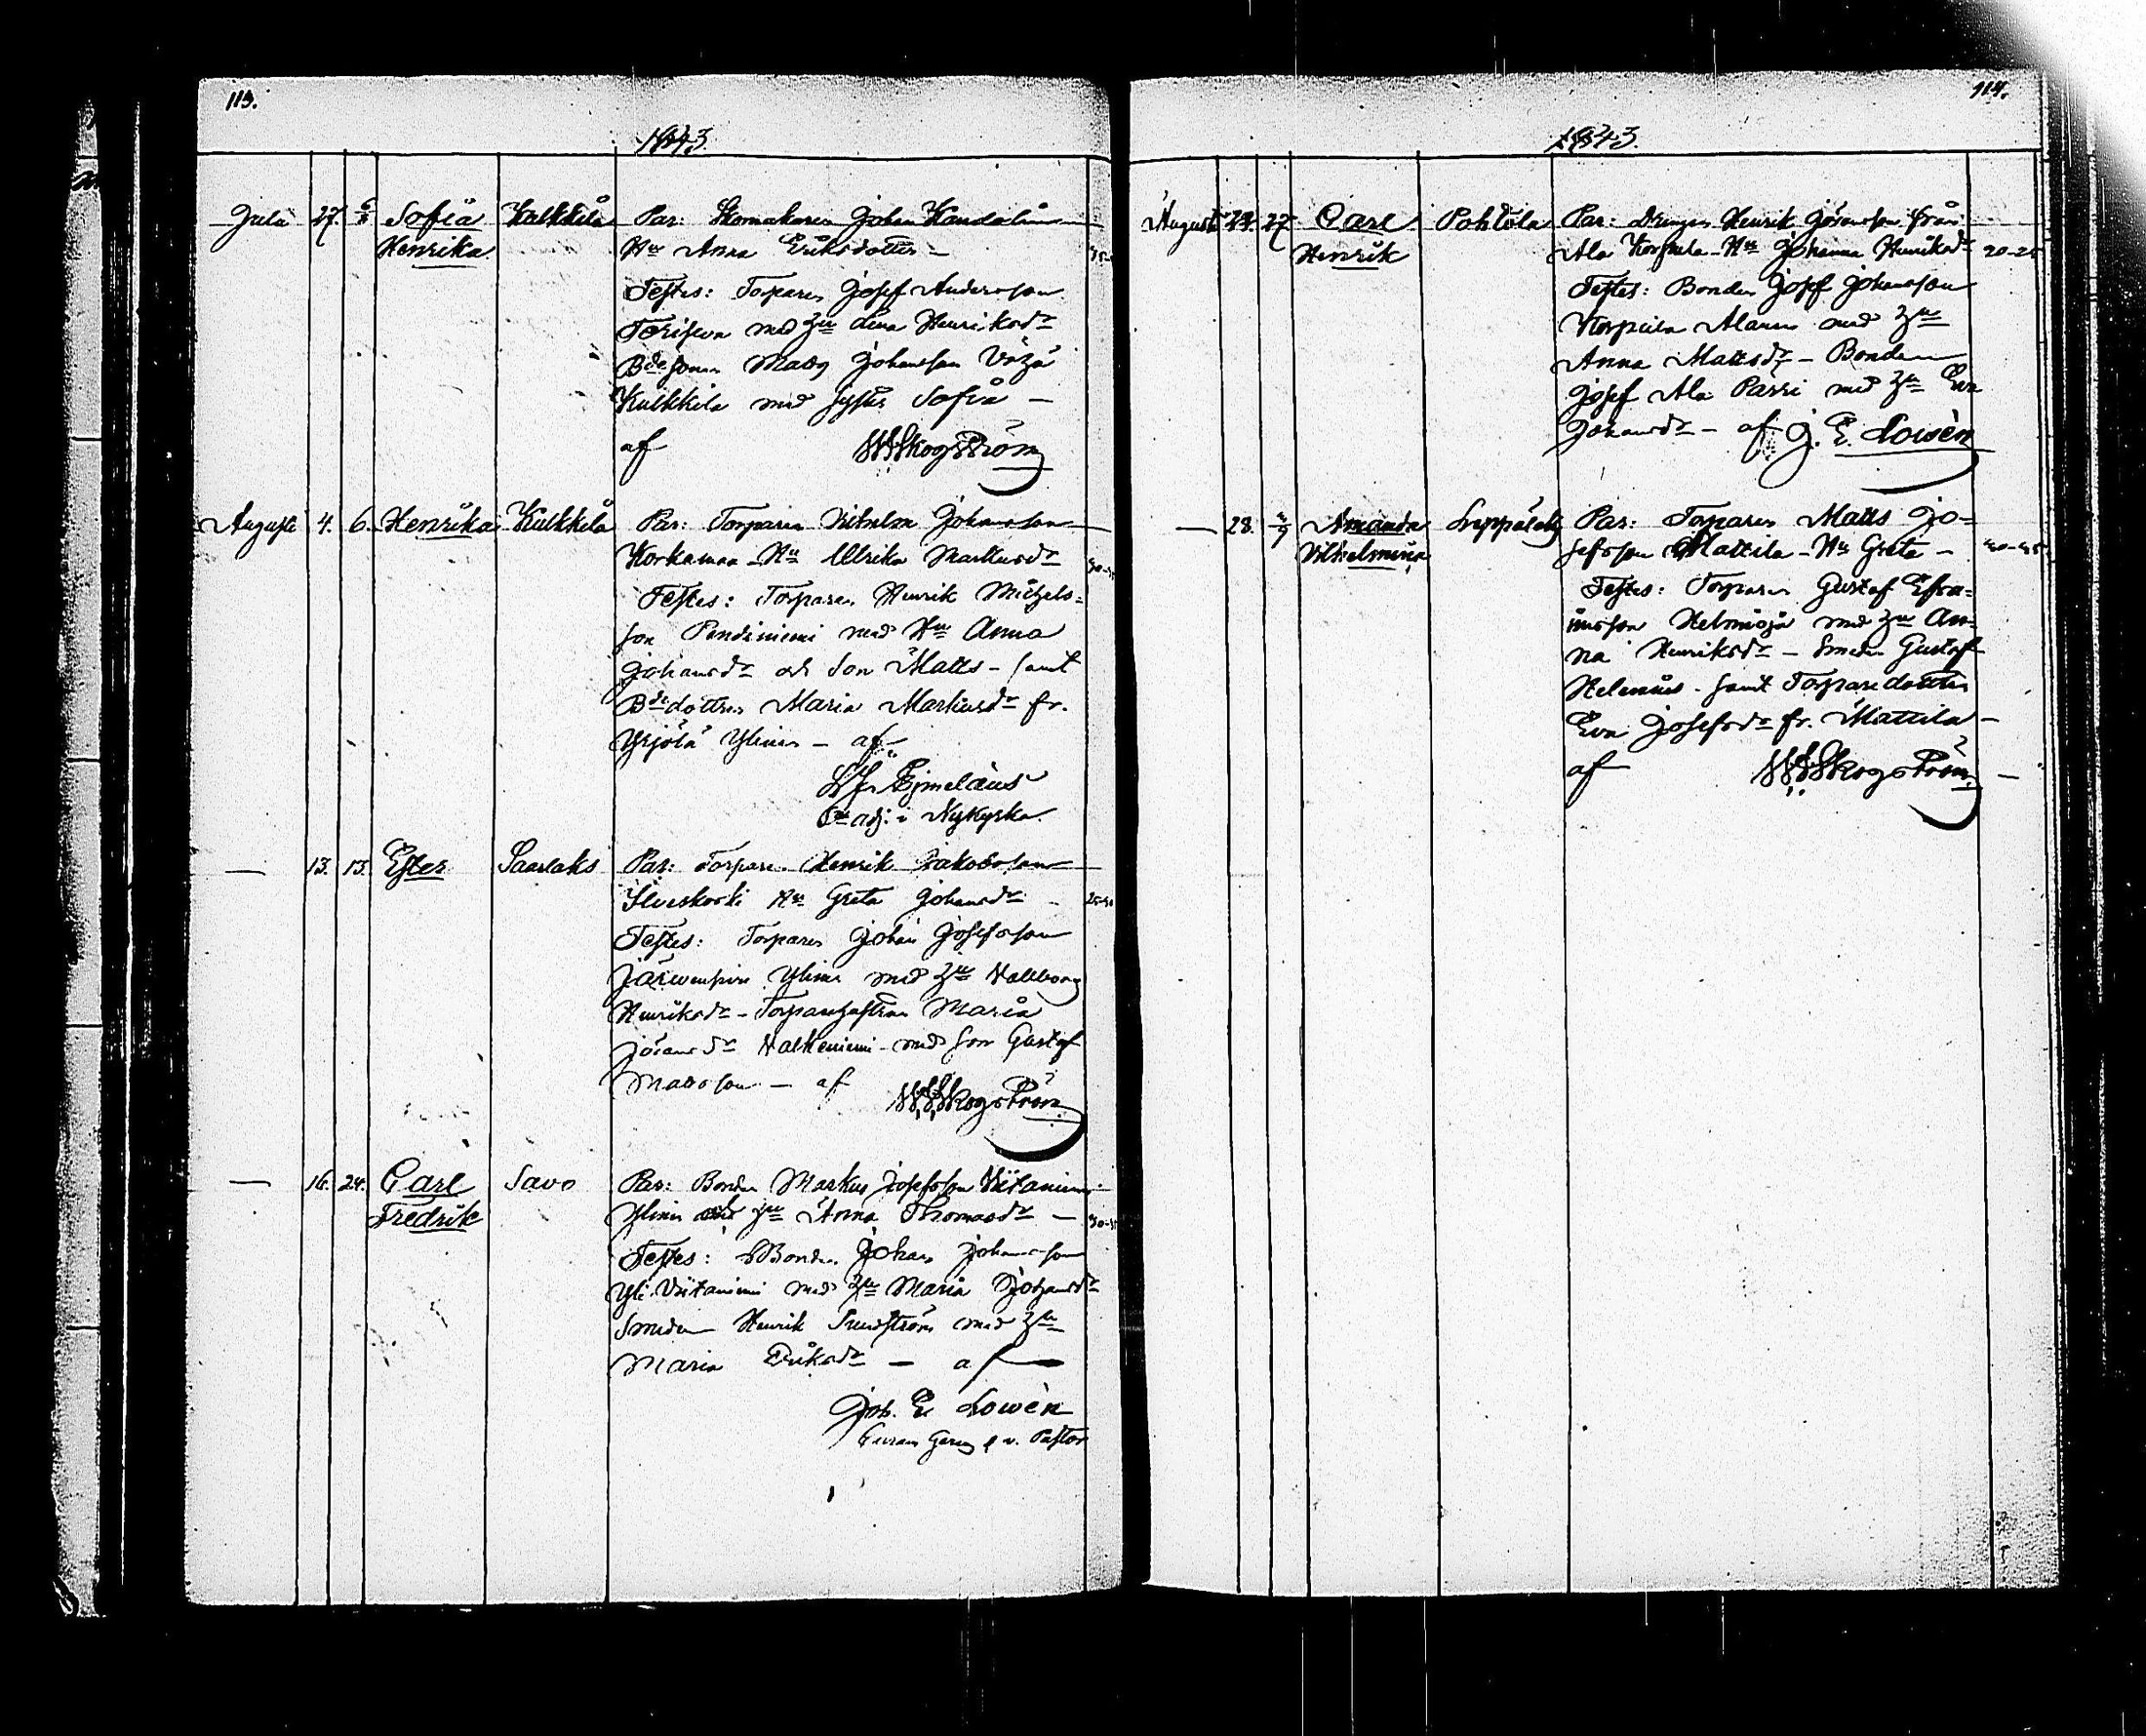 113.
1843.
Juli 27. 6/8 Sofia Kulkkila Par: Skomakaren Johan Kandolin
Henrika Hu Anna Eriksdotter —
Testes: Torparen Josef Andersson
med hu Lina Henriksdr
Bdesonen Matts Johansson
Kulkkila med syster Sofia —
af W. Skogström
Augusti 4. 6. Henrika Kulkkila Par: Torparen Vilhelm Johansson
Korkamaa – Hu Ulrika Markusdr
Testes: Torparen Henrik Michels=
son Pendiniemi med Hu Anna
Johansdr och Son Matts – samt
Bdedottren Maria Markusdr fr.
Yrjölä Ylinen – af
Ejmelæus
adj. i Nykyrka.
— 13. 13. Ester Saarlaks Par: Torparen Henrik Jakobsson
Ilveskoski Hu Greta Johansdr – 25-30
Testes: Torparen Johan Josefsson
Järvenpää Ylinen med hu Valborg
Henriksdr – Torparehustrun Maria
Göransdr Valkeniemi med son Gustaf
Matsson — af W. Skogström
— 16. 24. Carl Savo Par: Bonden Markus Josefsson Viitaniemi
Fredrik Ylinen och hu Anna Thomasdr —
Testes: Bonden Johan Johansson
Yli Viitaniemi med hu Maria Johansdr
Smeden Henrik Sundström med hu
Maria Eriksdr — af
Joh. E. Lowén
v. Pastor
114.
1843.
Augusti 24. 27 Carl Pohlola Par: Drengen Henrik Göransson från
Henrik Ala Korpula – Hu Johanna Henriksdr 20-25
Testes: Bonden Josef Johansson
Korpula Alanen med hu
Anna Mattsdr – Bonden
Josef Ala Parri med hu Eva
Johansdr – af J. E. Lowén
— 28. Amanda Leppälaks Par: Torparen Matts Jo=
Vilhelmina sefsson Mattila – Hu Greta – 40-45
Testes: Torparen Gustaf Efra=
imsson Helmisjä med hu An=
na Henriksdr – Smeden Gustaf
Helenius. samt Torparedottren
Eva Josefsdr fr. Mattila –
af W. Skogström —